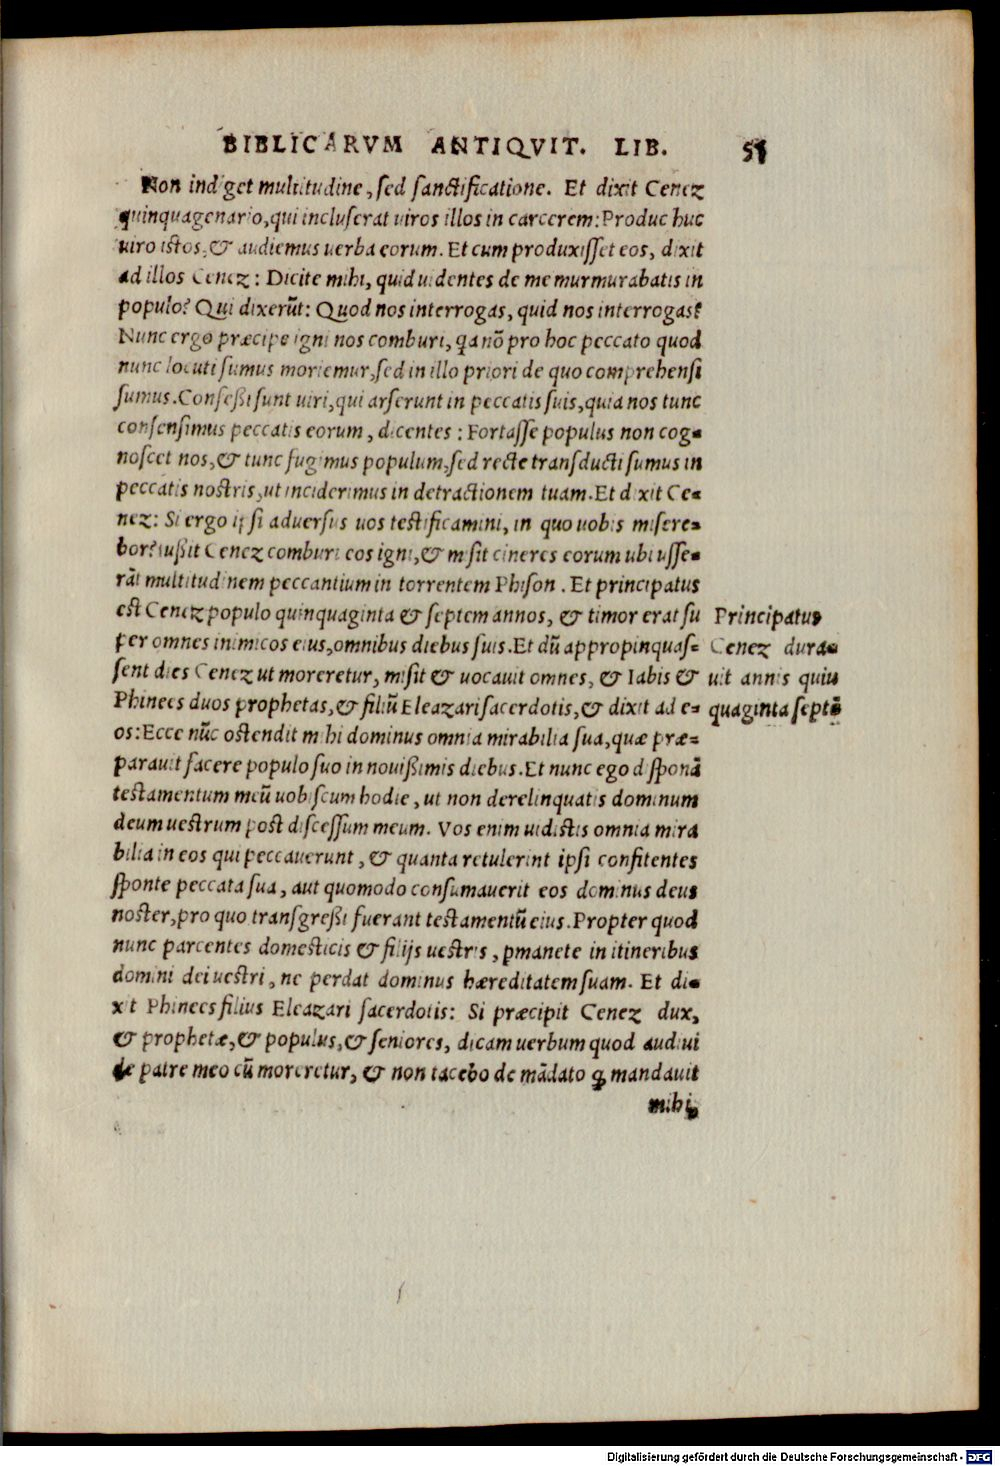 BIBLICARVM ANTIQVIT. LIB.
Non indiget multitudine, sed sanctificatione. Et dixit Cenez
quinquagenario, qui incluserat uiros illos in carcerem: Produc huc
uiro istos, & audiemus uerba eorum. Et cum produxisset eos, dixit
ad illos Cenez: Dicite mihi, quid uidentes de me murmurabatis in
populo? Qui dixerūt: Quod nos interrogas, quid nos interrogas?
Nunc ergo præcipe igni nos comburi, qa nō pro hoc peccato quod
nunc locuti sumus moriemur, sed in illo priori de quo comprehensi
sumus. Confeßi sunt uiri, qui arserunt in peccatis suis, quia nos tunc
consensimus peccatis eorum, dicentes: Fortasse populus non cog-
noscet nos, & tunc fugimus populum, sed recte transducti sumus in
peccatis nostris, ut inciderimus in detractionem tuam. Et dixit Ce-
nez: Si ergo ipsi aduersus uos testificamini, in quo uobis misere-
bor? iußit Cenez comburi eos igni, & misit cineres eorum ubi usse-
rāt multitudinem peccantium in torrentem Phison. Et principatus
est Cenez populo quinquaginta & septem annos, & timor erat su
per omnes inimicos eius, omnibus diebus suis. Et dū appropinquas-
sent dies Cenez ut moreretur, misit & uocauit omnes, & Iabis &
Phinees duos prophetas, & filiū Eleazari sacerdotis, & dixit ad e-
os: Ecce nūc ostendit mihi dominus omnia mirabilia sua, quæ præ-
parauit facere populo suo in nouißimis diebus. Et nunc ego disponā
testamentum meū uobiscum hodie, ut non derelinquatis dominum
deum uestrum post discessum meum. Vos enim uidistis omnia mira
bilia in eos qui peccauerunt, & quanta retulerint ipsi confitentes
sponte peccata sua, aut quomodo consumauerit eos dominus deus
noster, pro quo transgreßi fuerant testamentū eius. Propter quod
nunc parcentes domesticis & filijs uestris, pmanete in itineribus
domini dei uestri, ne perdat dominus hæreditatem suam. Et di-
xit Phinees filius Eleazari sacerdotis: Si præcipit Cenez dux,
& prophetæ, & populus, & seniores, dicam uerbum quod audiui
de patre meo cū moreretur, & non tacebo de mādato ꝙ mandauit
mihi,
Principatus
Cenez dura-
uit annis quin
quaginta septē
Digitalisierung gefördert durch die Deutsche Forschungsgemeinschaft - DFG